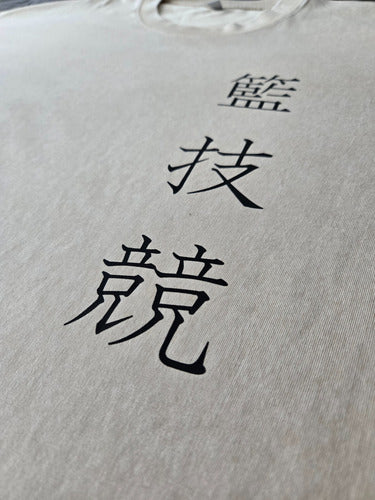 籃
技
競